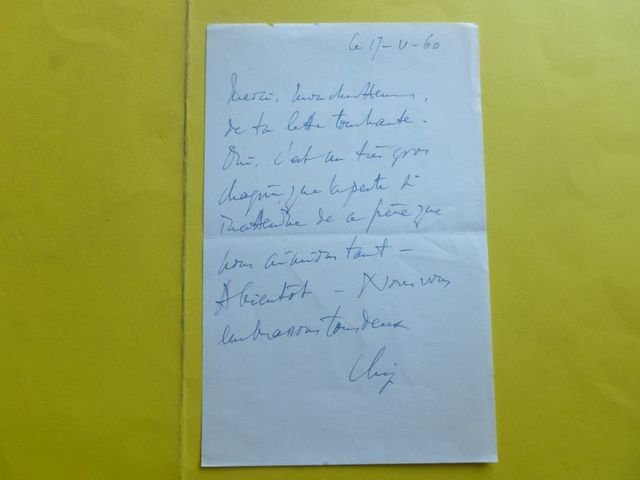 le 17-V-60
Merci, mon cher
de ta lettre touchante.
Oui, c'est un très gros
chagrin que la perte si
inattendue de ce frère que
nous aimions tant -
A bientôt - Nous vous
embrassons tous deux